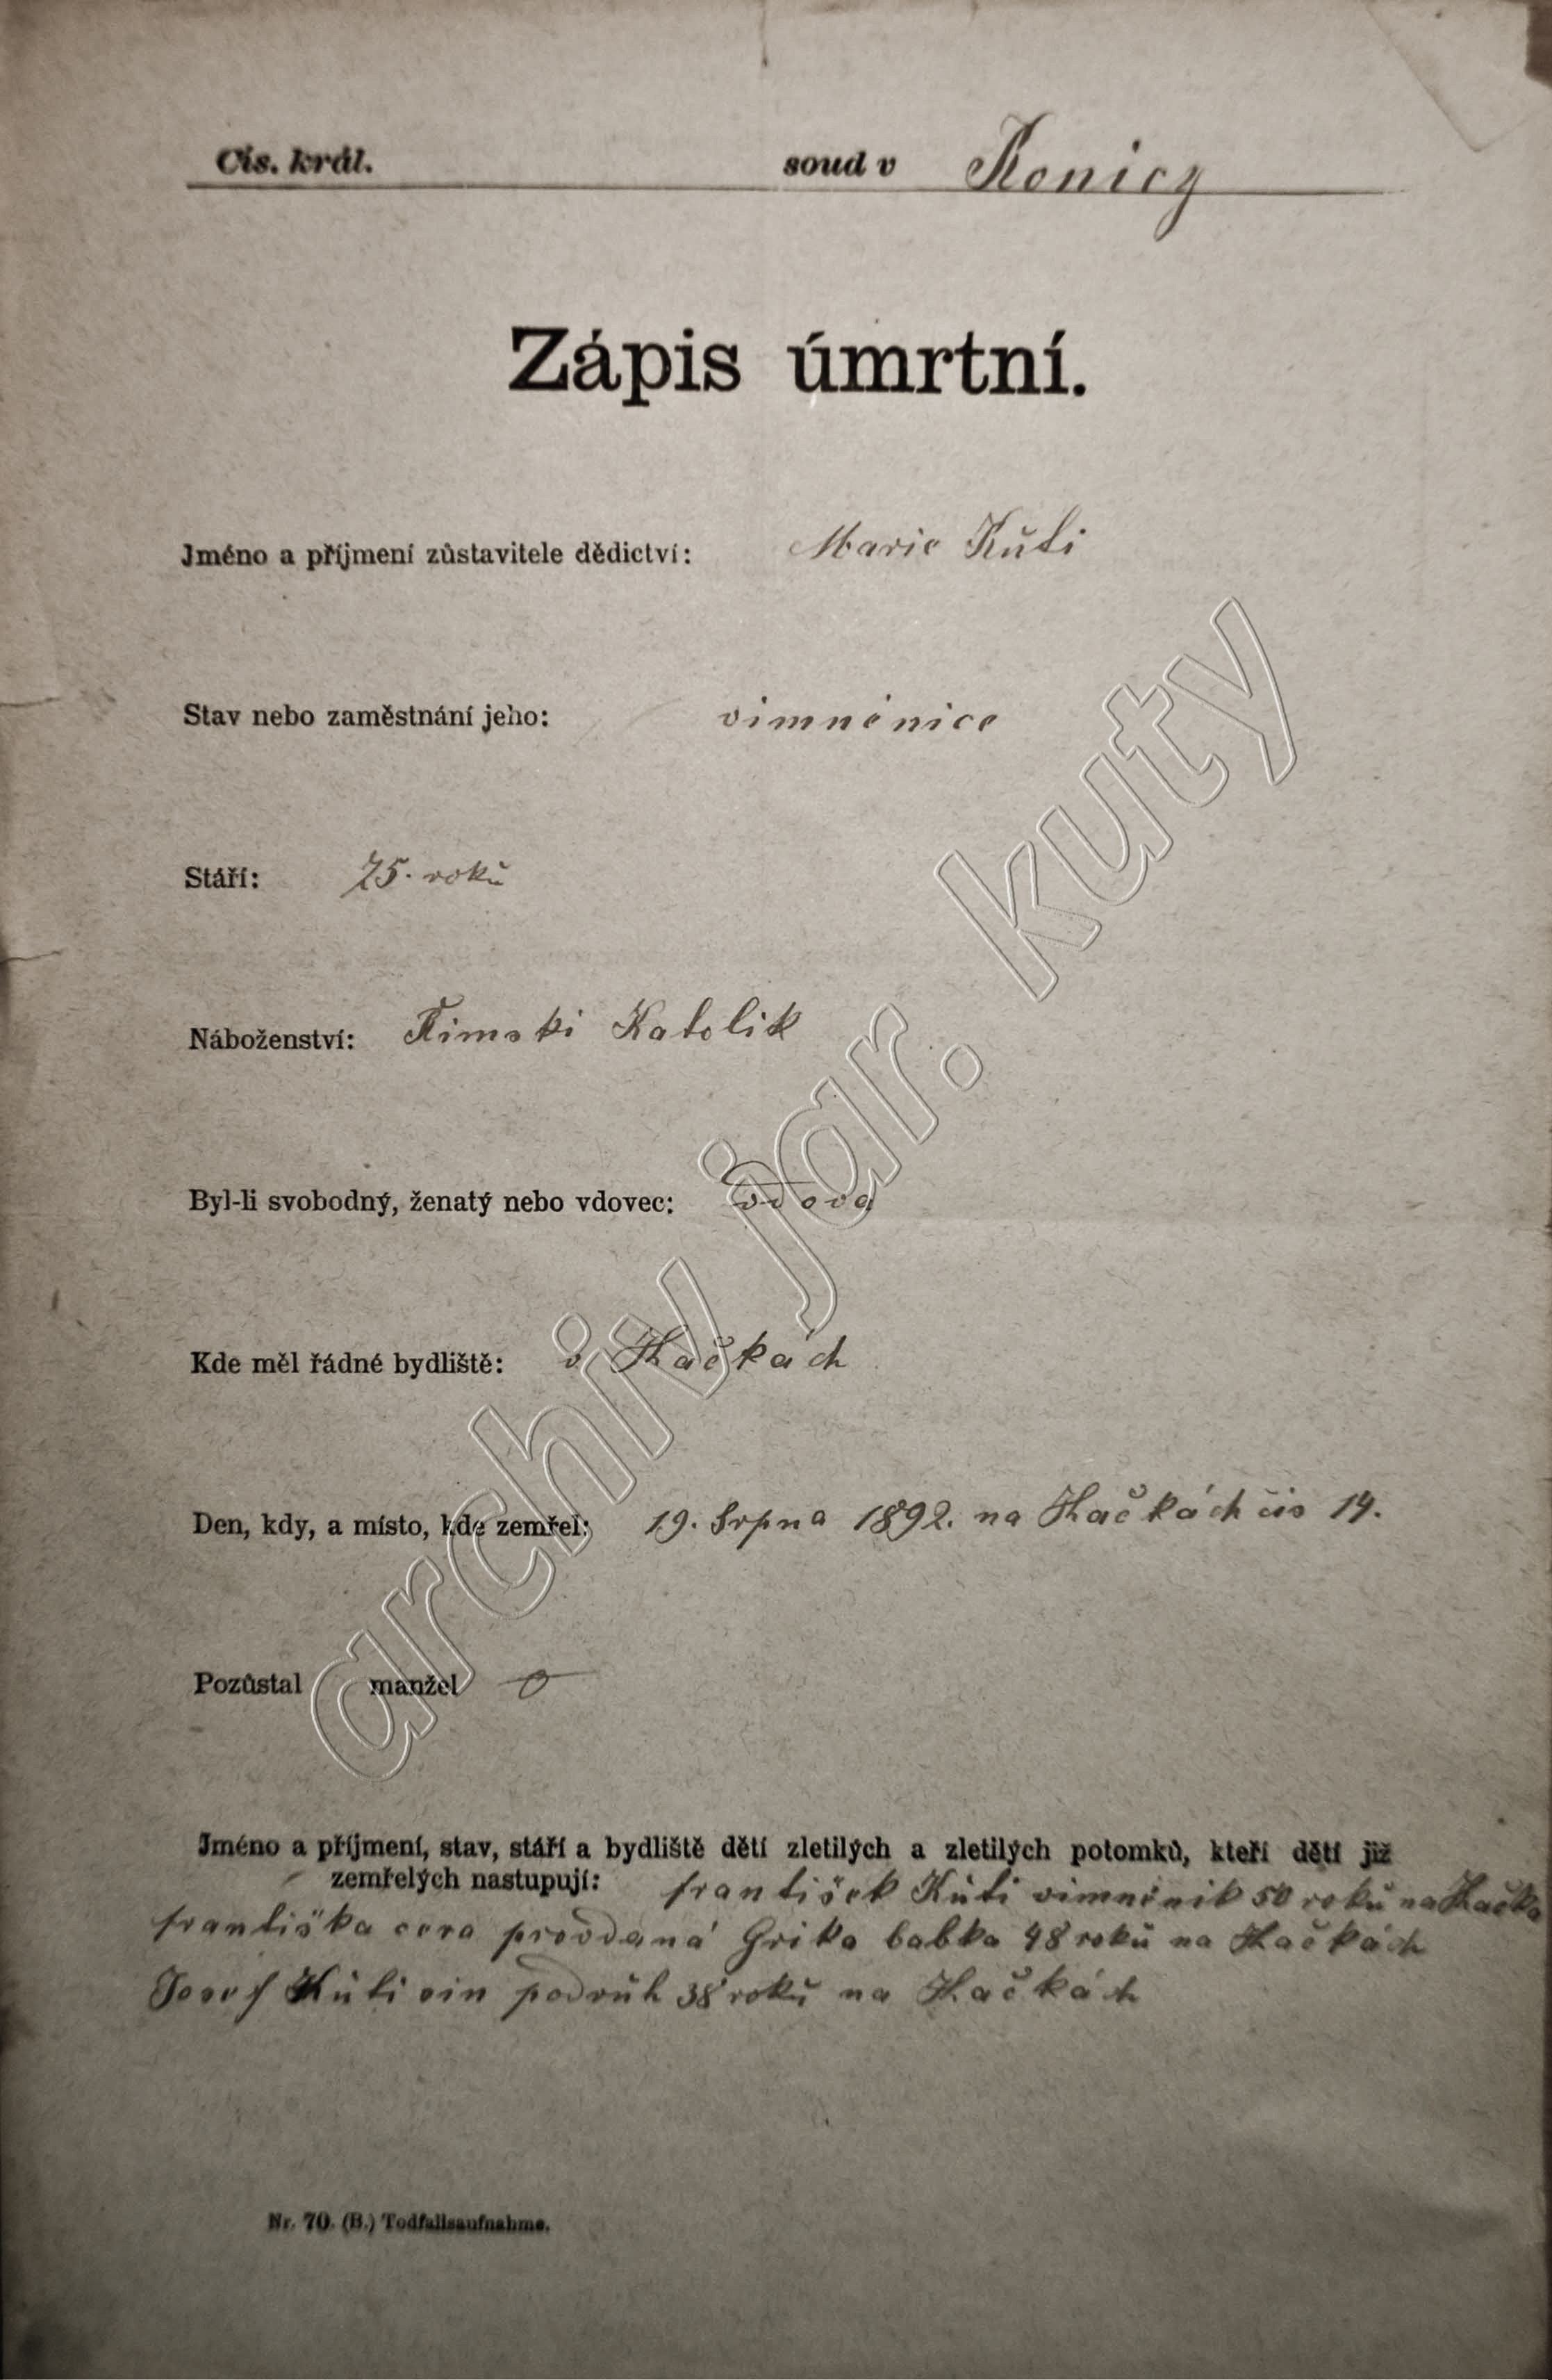 Cis. král. soud v Konicy
Zápis úmrtní.
Jméno a příjmení zůstavitele dědictví: Marie Kůti
Stav nebo zaměstnání jeho: vimněnice
Stáří: 75. roků
Náboženství: Řimski Katolik
Byl-li svobodný, ženatý nebo vdovec: vdova
Kde měl řádné bydliště: v Hačkách
Den, kdy, a místo, kde zemřel: 19. Srpna 1892. na Hačkách čis 14.
Pozůstal manžel 0
Jméno a příjmení, stav, stáří a bydliště dětí zletilých a zletilých potomků, kteří dětí již
zemřelých nastupují: františek Kůti vimněnik 50 roků na Hačka
františka cera provdaná Grika babka 48 roků na Hačkách
Josef Kůti sin podruh 38 roků na Hačkách
Nr. 70. (B.) Todfallsaufnahme.
archiv jar. kuty